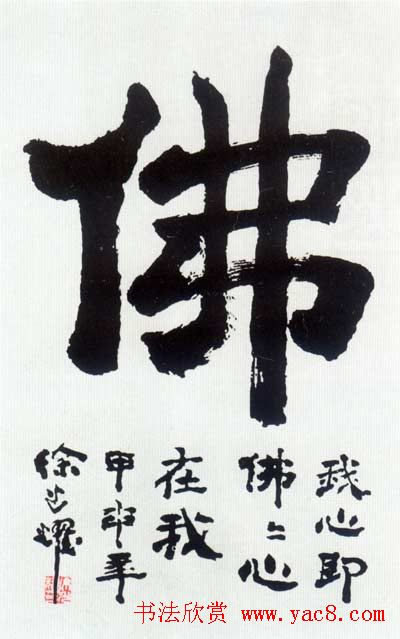 佛
我心即
佛〻心
在我
甲申年
徐
书法欣赏 www.yac8.com